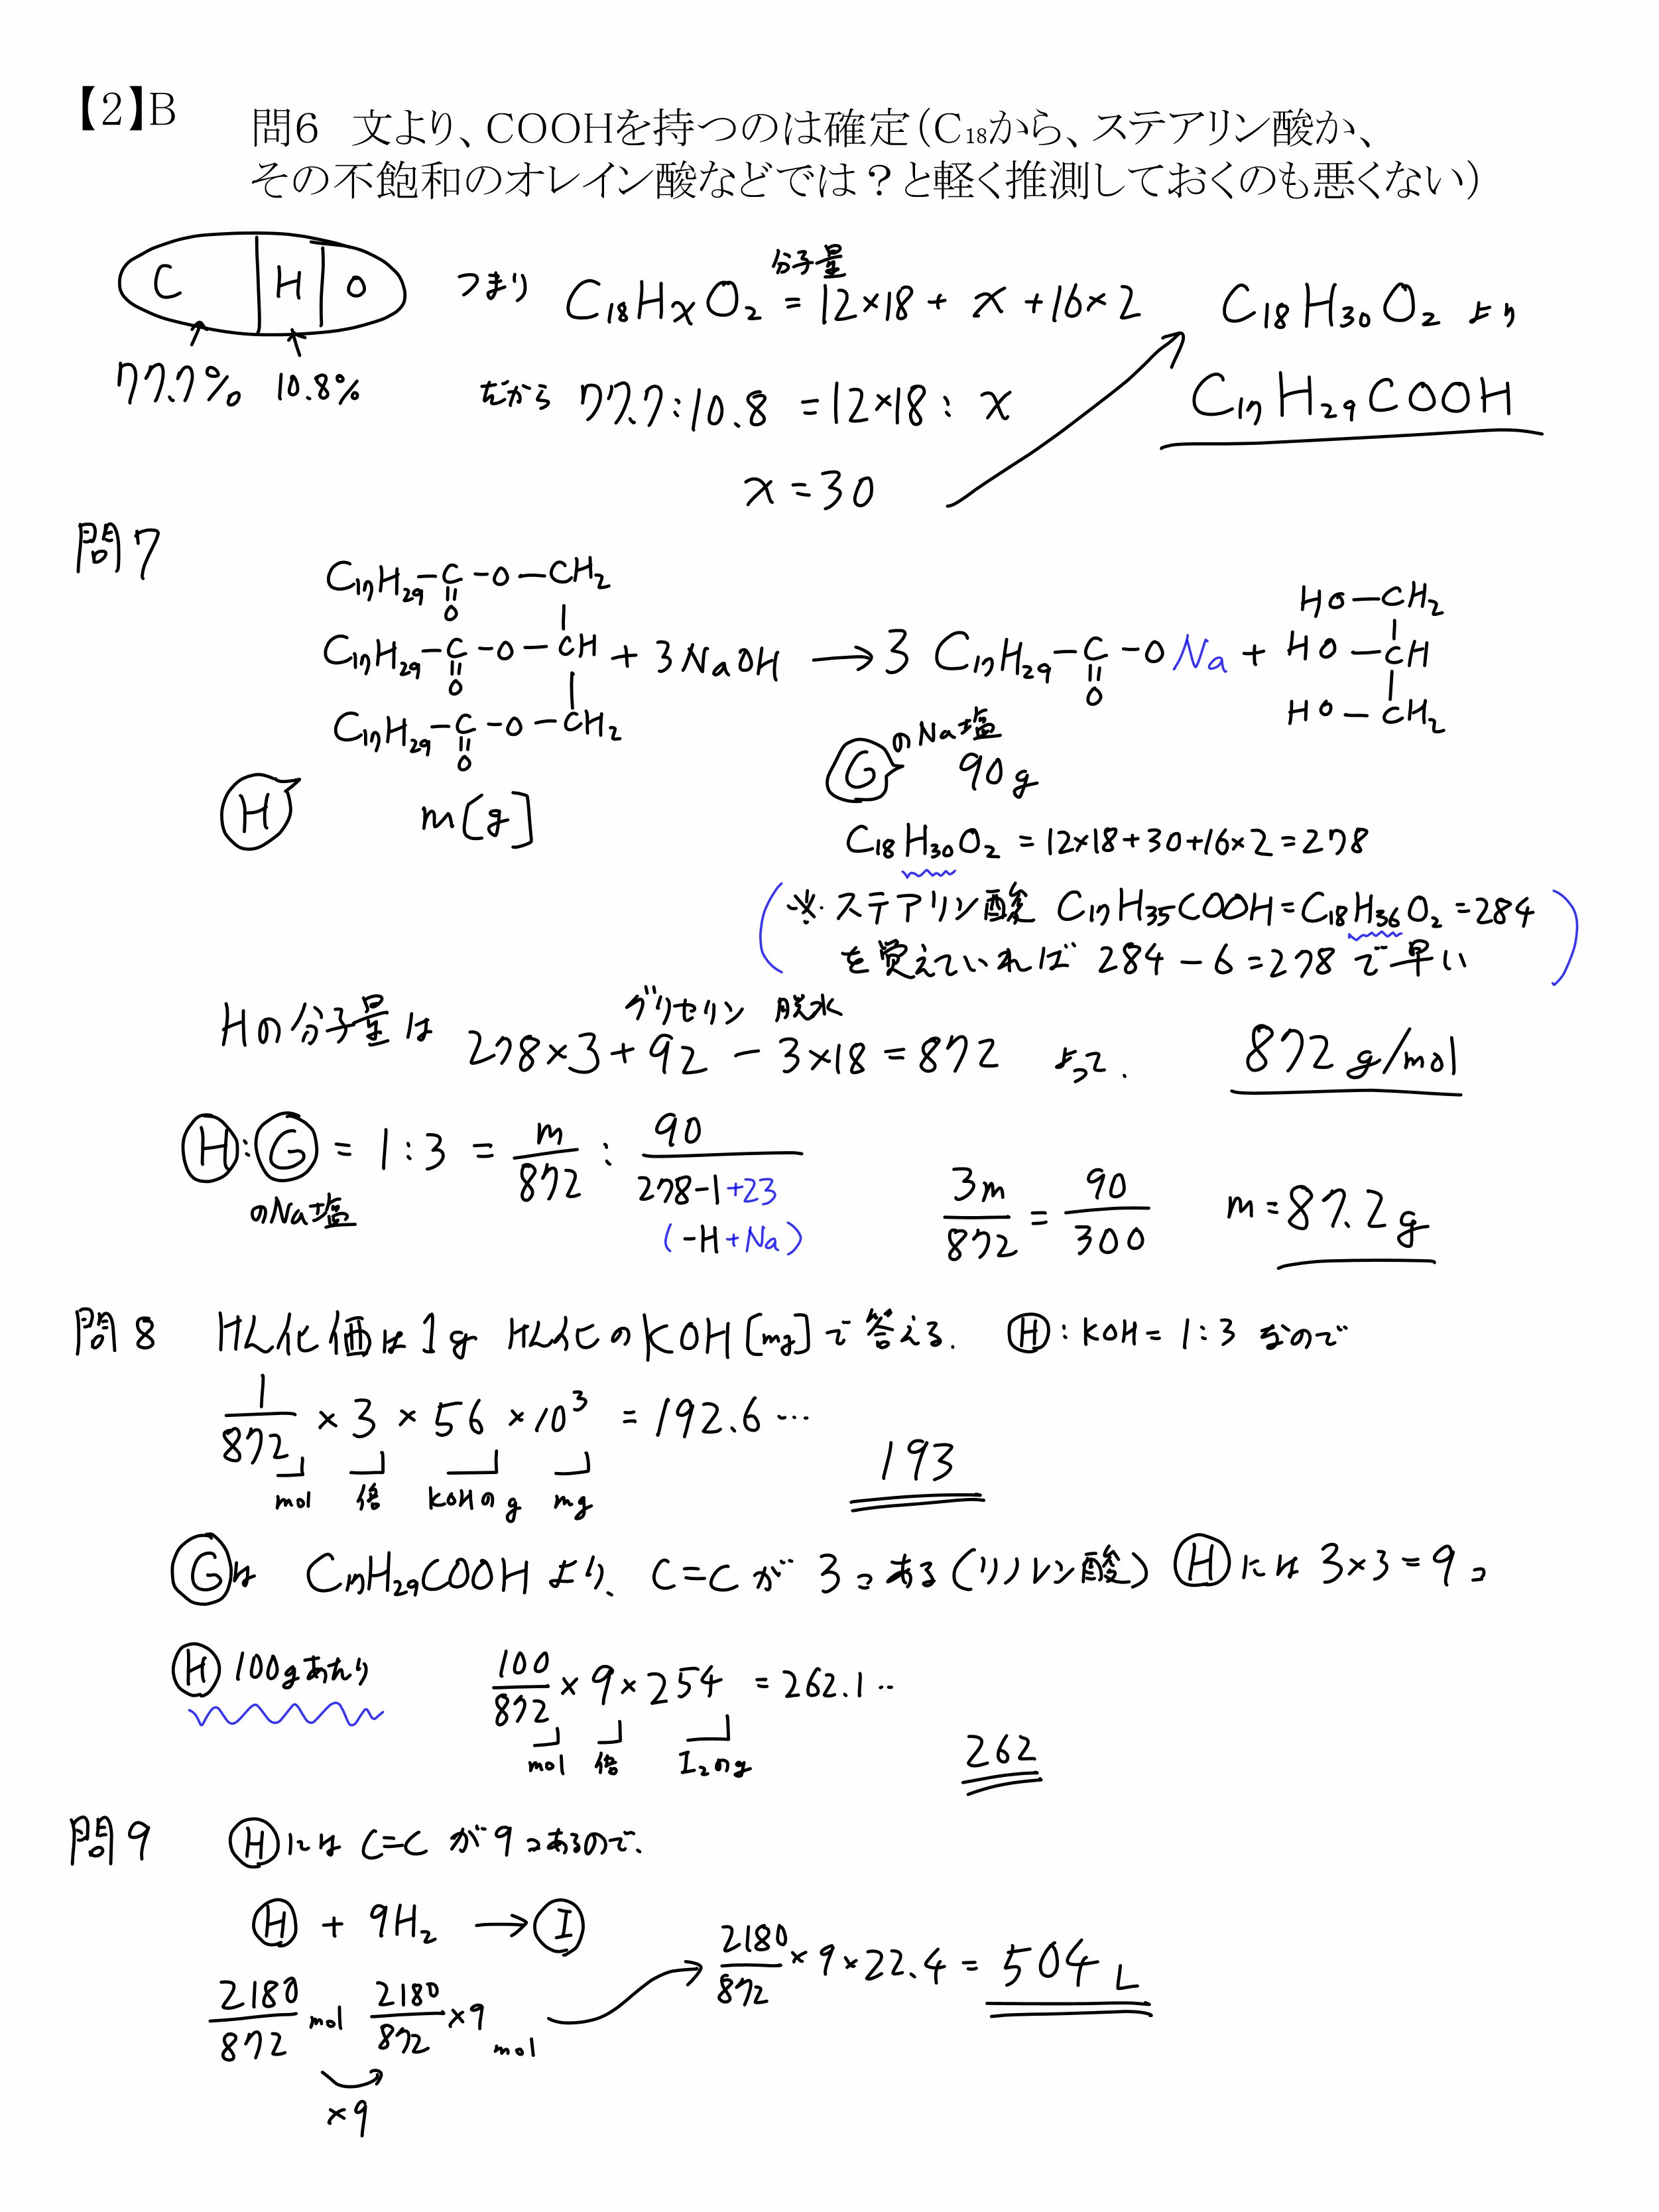 【2】B
問6 文より、COOHを持つのは確定(C₁₈から、ステアリン酸か、
その不飽和のオレイン酸などでは？と軽く推測しておくのも悪くない)
C H O
77.7% 10.8%
つまり C₁₈HxO₂ = 12×18 + x + 16×2
分子量
だから 77.7:10.8 = 12×18 : x
x = 30
C₁₈H₃₀O₂ より
C₁₇H₂₉COOH
問7
C₁₇H₂₉-C-O-CH₂
O
C₁₇H₂₉-C-O-CH + 3NaOH → 3 C₁₇H₂₉-C-ONa +
O
C₁₇H₂₉-C-O-CH₂
O
O
HO-CH₂
HO-CH
HO-CH₂
H
m[g]
G のNa塩
90g
C₁₈H₃₀O₂ = 12×18+30+16×2 = 278
(※ステアリン酸 C₁₇H₃₅COOH = C₁₈H₃₆O₂ = 284
を覚えていれば 284-6=278 で早い)
グリセリン 脱水
Hの分子量は 278×3+92 - 3×18 = 872 よって、 872 g/mol
H:G = 1:3 = m/872 : 90/(278-1+23)
のNa塩
(-H+Na)
3m/872 = 90/300 m = 87.2g
問8 けん化価は1g けん化のKOH[mg]で答える. H:KOH = 1:3 なので
1/872 × 3 × 56 × 10³ = 192.6…
mol 倍 KOHのg mg
193
Gは C₁₇H₂₉COOH より、C=C が 3コある(リノレン酸) Hには 3×3=9コ
H 100gあたり 100/872 × 9 × 254 = 262.1…
mol 倍 I₂のg
262
問9 Hには C=C が9コあるので、
H + 9H₂ → I
2180/872 mol 2180/872 ×9 mol
×9
2180/872 × 9 × 22.4 = 504 L